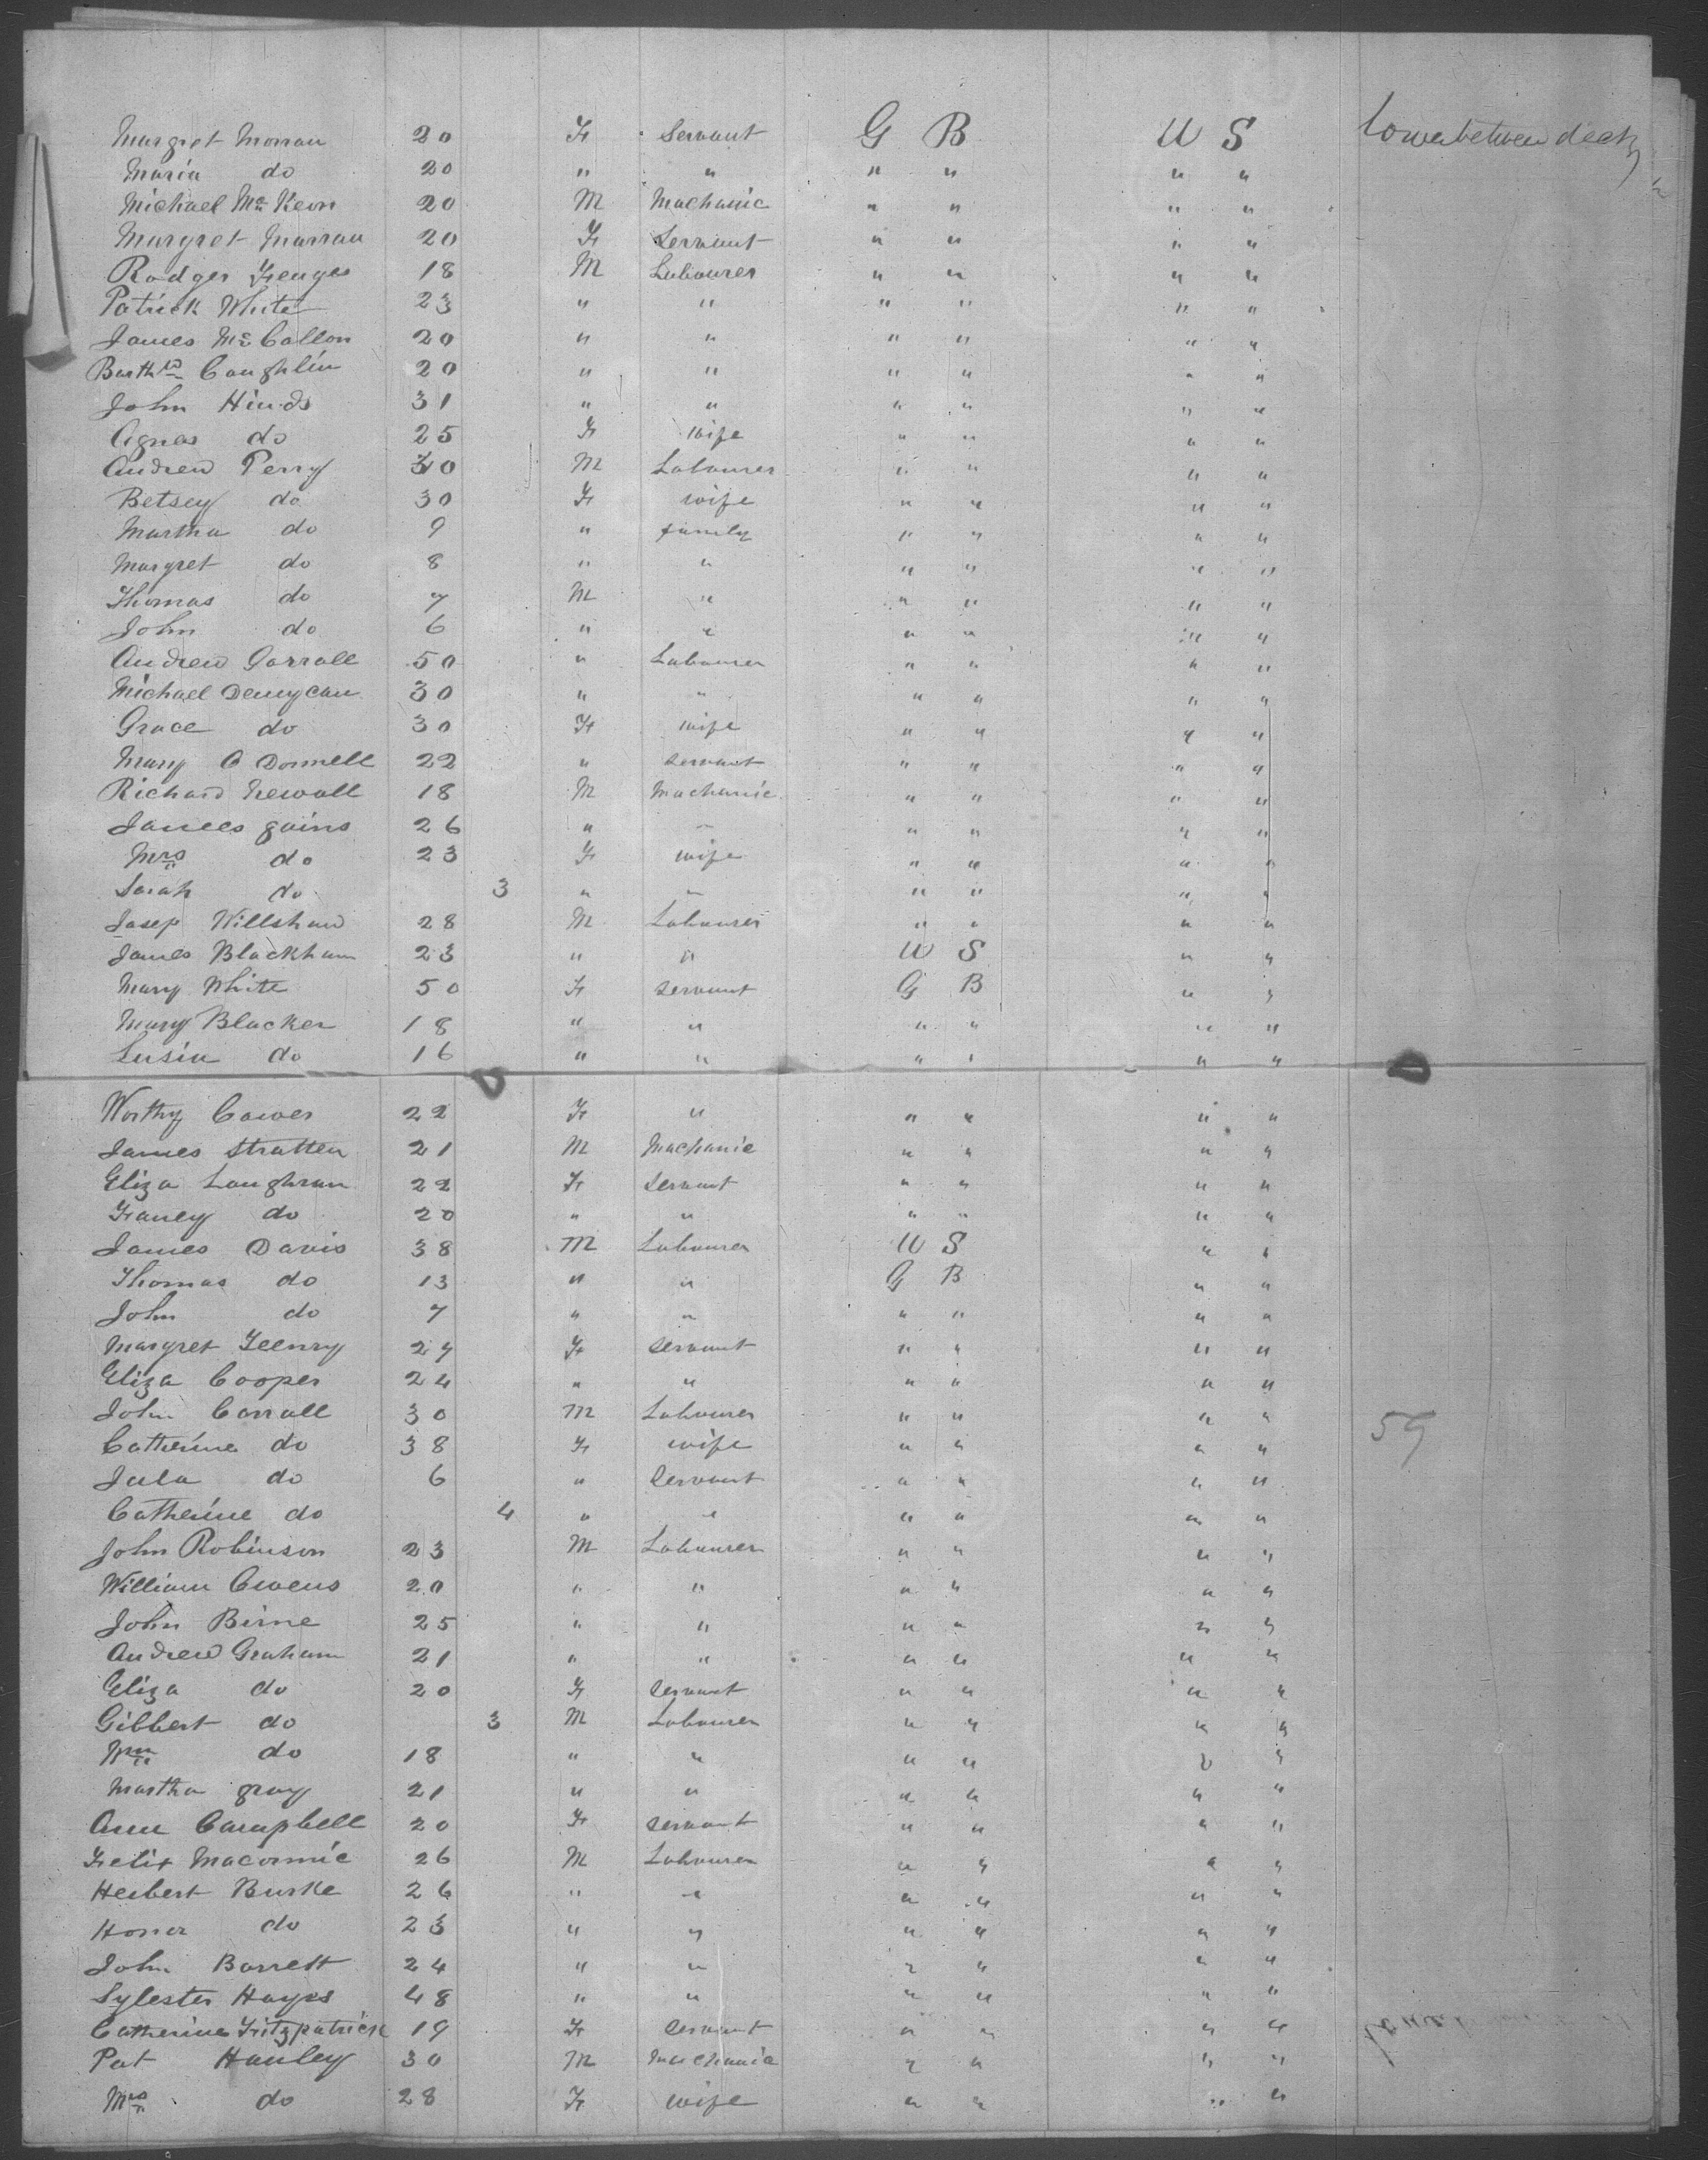 Margret Morran 20 F Servant G B U S Lower between decks
Maria do 20 " " " " " "
Michael Mc Keon 20 M Machanic " " " "
Margret Marran 20 F Servant " " " "
Rodger Fenges 18 M Labourer " " " "
Patrick White 23 " " " " " "
James Mc Callon 20 " " " " " "
Barthw Coughlin 20 " " " " " "
John Hinds 31 " " " " " "
Agnas do 25 F wife " " " "
Andrew Perry 30 M Labourer " " " "
Betsey do 30 F wife " " " "
Martha do 9 " family " " " "
Margret do 8 " " " " " "
Thomas do 7 M " " " " "
John do 6 " " " " " "
Andrew Garrall 50 " Labourer " " " "
Michael Demycan 30 " " " " " "
Grace do 30 F wife " " " "
Mary O Donnell 22 " servant " " " "
Richard Newall 18 M Machanic " " " "
James gains 26 " " " " " "
Mrs do 23 F wife " " " "
Sarah do 3 " " " " " "
Josep Willshaw 28 M Labourer " " " "
James Blackham 23 " " U S " "
Mary White 50 F servant G B " "
Mary Blacker 18 " " " " " "
Susin do 16 " " " " " "
Worthy Cawer 22 F " " " " "
James Stratten 21 M Machanic " " " "
Eliza Loughran 22 F servant " " " "
Faney do 20 " " " " " "
James Davis 38 M Labourer U S " "
Thomas do 13 " " G B " "
John do 7 " " " " " "
Margret Feenry 27 F servant " " " "
Eliza Cooper 24 " " " " " "
John Carrall 30 M Labourer " " " " 59
Catherine do 38 F wife " " " "
Jula do 6 " servant " " " "
Catherine do 4 " " " " " "
John Robinson 23 M Labourer " " " "
William Owens 20 " " " " " "
John Birne 25 " " " " " "
Andrew Graham 21 " " " " " "
Eliza do 20 F servant " " " "
Gilbert do 3 M Labourer " " " "
Wm do 18 " " " " " "
Martha gray 21 " " " " " "
Ann Campbell 20 F servant " " " "
Felix Macormic 26 M Labourer " " " "
Herbert Burke 26 " " " " " "
Honer do 23 " " " " " "
John Barrett 24 " " " " " "
Sylester Hayes 48 " " " " " "
Catherine Fitzpatrick 19 F servant " " " "
Pat Hanley 30 M Machanic " " " "
Mrs do 28 F wife " " " "